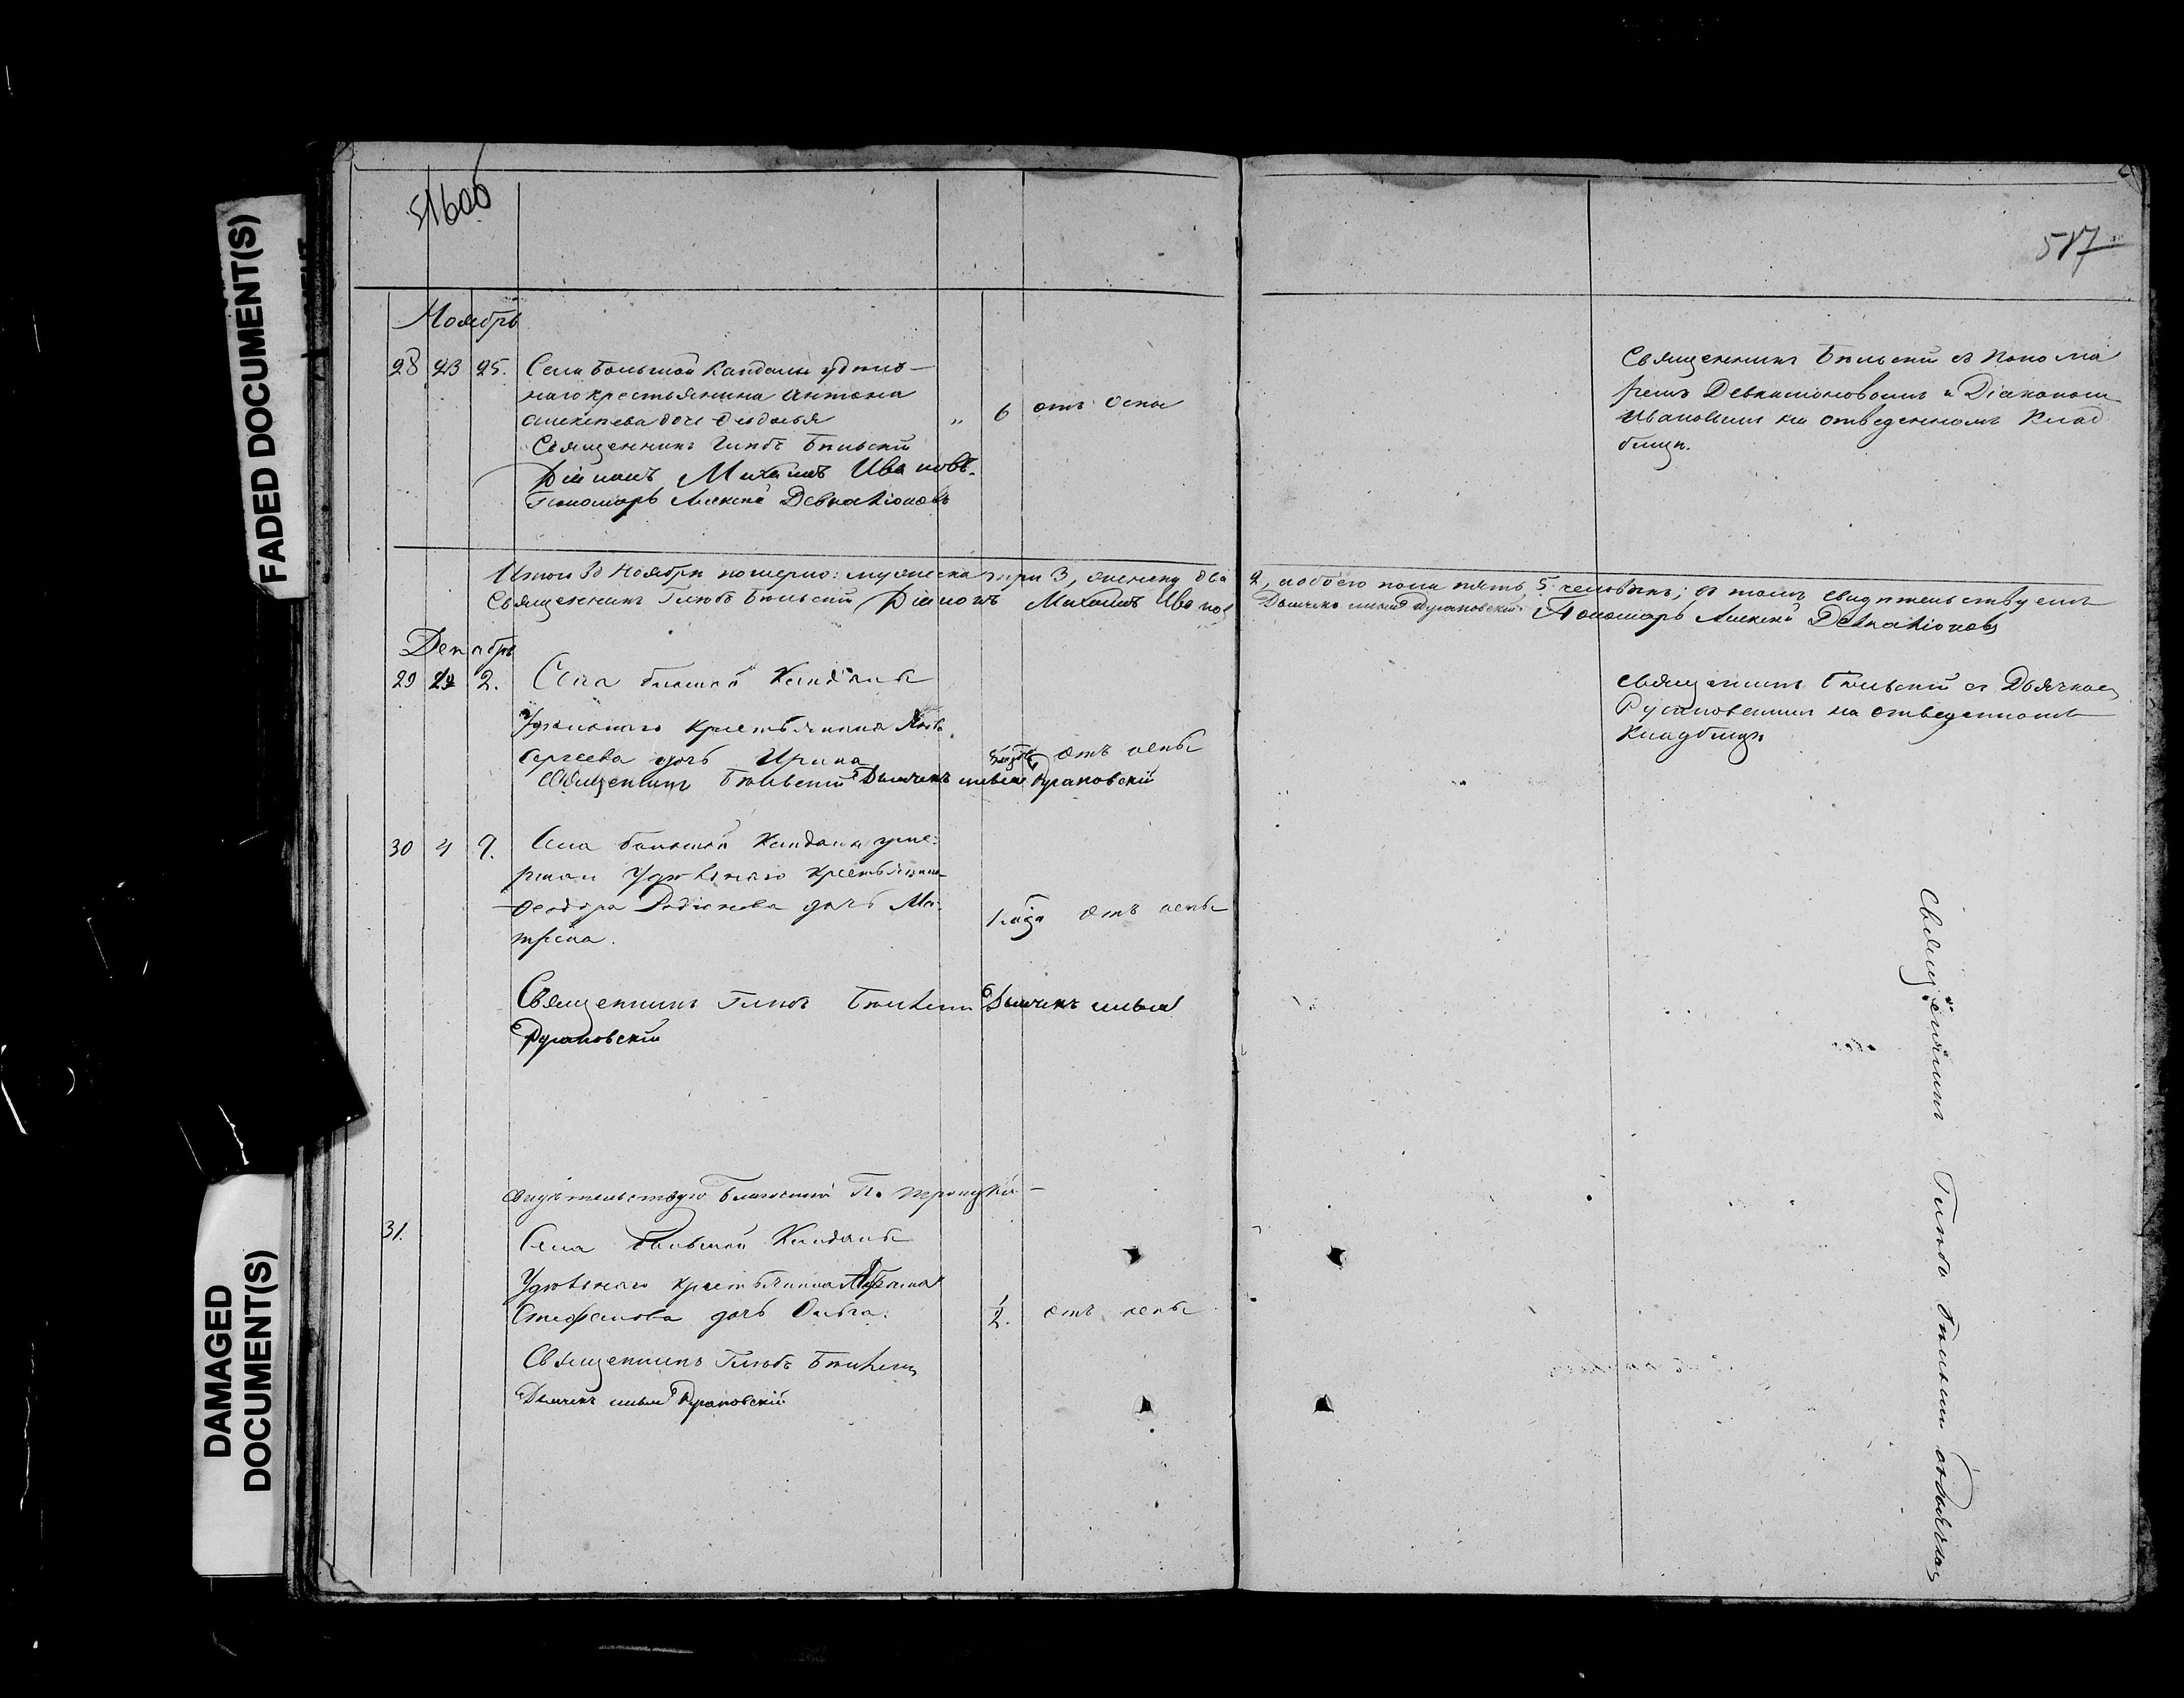 FADED DOCUMENT(S)
DAMAGED DOCUMENT(S)
51600
587
Ноябрь
28 23 25. Села Большой Кандалы удѣль-
наго крестьянина Антона
Алексѣева дочь Ѳеодосья „ 6 отъ оспы
Священникъ Глѣбъ Бѣльскій
Діаконъ Михаилъ Ивановъ.
Пономарь Алексѣй Девкаліоновъ
Священникъ Бѣльскій съ Понома
ремъ Девкаліоновымъ и Діакономъ
Ивановымъ на отведенномъ Клад
бищѣ.
Итого въ Ноябрѣ померло: мужеска три 3, женску два 2, а обоего пола пять 5 человѣкъ; въ томъ свидѣтельствуемъ
Священникъ Глѣбъ Бѣльскій Діаконъ Михаилъ Ивановъ Дьячекъ Рудановскій Пономарь Алексѣй Девкаліоновъ
Декабрь
29 2. Села Большой Кандалы
Удѣльнаго Крестьянина
Сергеева дочь Ирина отъ оспы
Священникъ Бѣльскій Дьячекъ Рудановскій
Священникъ Бѣльскій съ Дьячкомъ
на отведенномъ
Кладбищѣ
30 4 9. Села Большой Кандалы
Удѣльнаго Крестьянина
Ѳеодора Родіонова дочь Ма-
трена. 1 года отъ оспы
Священникъ Глѣбъ Бѣльскій Дьячекъ
Рудановскій
Свидѣтельствую Благочинный
31. Села Большой Кандалы
Удѣльнаго крестьянина Абрама
Стефанова дочь Ольга. 1/2. отъ оспы
Священникъ Глѣбъ Бѣльскій
Дьячекъ Рудановскій
Священникъ Глѣбъ Бѣльскій съ Дьячкомъ